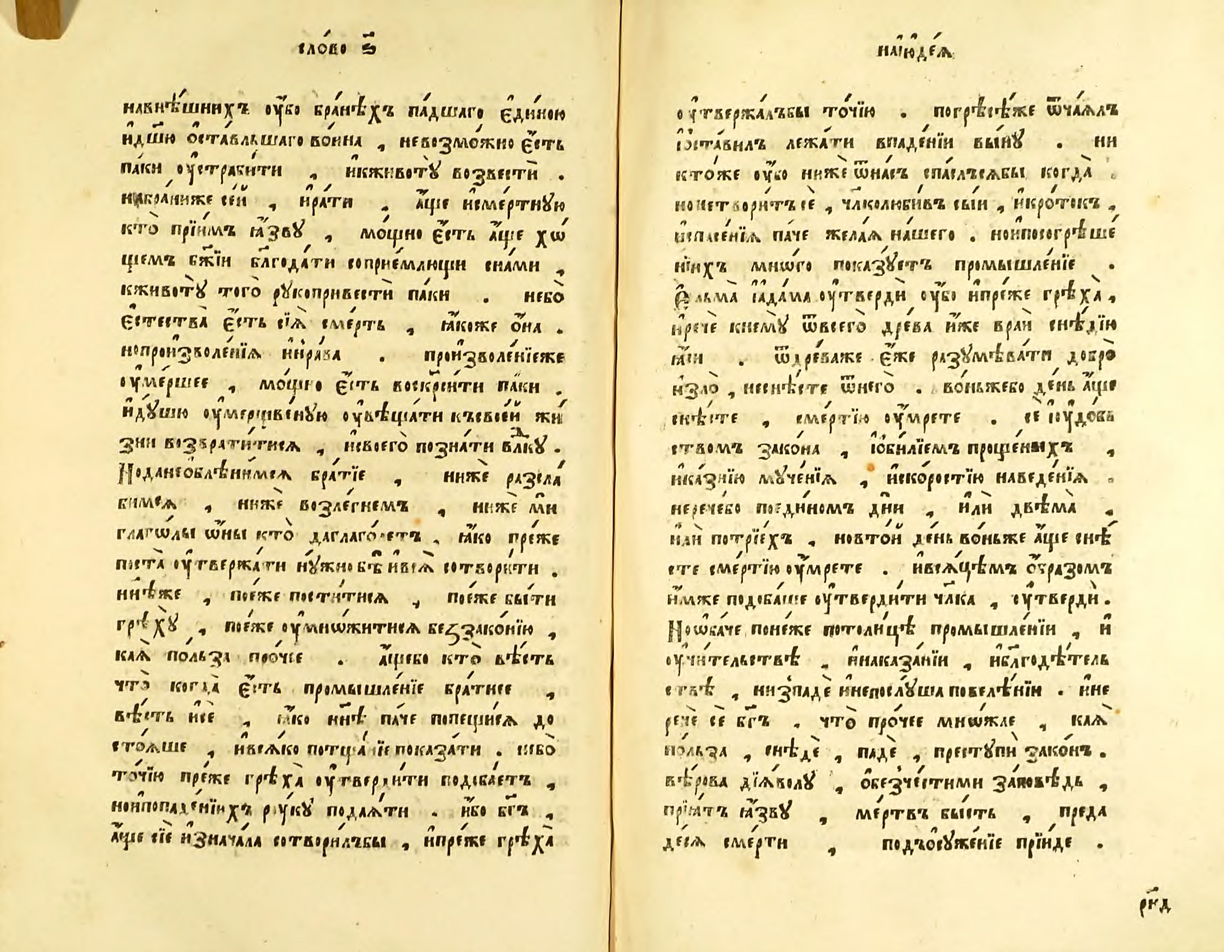 сло́во ѕ҃
навнѣ́шнихъ ᲂу҆́бо бра́нѣхъ па́дшаго є҆ди́ною
и҆дш҃ю ѡ҆ста́вльшаго во́ина , невозмо́жно є҆́сть
па́ки ᲂу҆стра́бити , икживотꙋ̀ возвестѝ .
набра́ниже се́й , и҆ра́ти . а҆́ще исме́ртную
кто̀ прїи́мъ ꙗ҆́звꙋ , мо́щно є҆́сть а҆́ще хѡ
щемъ бж҃їи бл҃года́ти соприе́млющи сна́ми ,
кживотꙋ̀ того̀ рꙋкопривестѝ па́ки . небо̀
є҆стества̀ є҆́сть сїѧ̀ сме́рть , ꙗ҆́коже ѻ҆́на .
нопроизволе́нїѧ и҆нра́ва . произволе́нїеже
ᲂу҆ме́ршее , мо́щно є҆́сть воскр҃сити па́ки .
и҆дꙋ́шю ᲂу҆мерщве́ную ᲂу҆вѣща́ти късвое́й жи́
зни возврати́тисѧ , исвоего̀ позна́ти влⷣкꙋ .
Нода́необлѣни́мсѧ бра́тїе , нижѐ разсла́
бимсѧ , нижѐ возлѧ́гнемъ , нижѐ ми
глаго́лы ѡ҆́ны кто̀ даглаго́летъ , ꙗ҆́ко пре́же
поста̀ ᲂу҆твержа́ти нꙋ́жно бѣ̀ ивсѧ̀ сотвори́ти .
ни́нѣже , пое́же пости́тисѧ , пое́же бы́ти
грѣхꙋ̀ , пое́же ᲂу҆мно́житисѧ беззако́нїю ,
ка́ѧ по́льза про́чее . а҆́щебо кто̀ вѣ́сть
что̀ когда̀ є҆́сть промышле́нїе бра́тнее ,
вѣ́сть и҆сѐ , ꙗ҆́ко ни́нѣ па́че попещи́сѧ до
сто́ѧше , ивсѧ́ко потща́нїе показа́ти . небо̀
то́чїю пре́же грѣха̀ ᲂу҆тверди́ти подоба́етъ ,
нои҆попаде́нїихъ рꙋ́кꙋ пода́ѧти . и҆́бо бг҃ъ ,
а҆́ще сїѐ и҆знача́ла сотвори́лъбы , и҆пре́же грѣха̀
наїю҆де́ѧ
ᲂу҆твержа́лъбы то́чїю . погрѣсѣ́же ѿча́ѧлъ
ѡ҆ста́вилъ лежа́ти впаде́нїи вы́нꙋ . ни
кто́же ᲂу҆́бо нижѐ ѿна́съ спа́слъсѧбы когда̀ .
нонетвори́тъ сѐ , чл҃колюби́въ сы́и , и҆кро́токъ ,
и҆спасе́нїѧ па́че жела́ѧ на́шего . нои҆посогрѣше́
нїихъ мно́го показꙋ́етъ промышле́нїе .
Е҆льма̀ і҆ада́ма ᲂу҆твердѝ ᲂу҆́бо и҆пре́же грѣха̀ ,
и҆речѐ кнемꙋ̀ ѿвсего̀ дре́ва и҆́же враѝ снѣ́дїю
ꙗ҆́си . ѿдре́важе є҆́же разꙋмѣва́ти добро̀
и҆зло̀ , неснѣ́сте ѿнего̀ . во́ньжебо де́нь а҆́ще
снѣ́сте , сме́ртїю ᲂу҆́мрете . сѐ и҆сꙋдовь
ствомъ зако́на , і҆оби́лїемъ проще́ныхъ ,
и҆ка́знїю мꙋче́нїѧ , и҆ско́ростїю наведе́нїѧ .
неречебо поеди́номъ днѝ , и҆лѝ двѣма̀ ,
и҆лѝ потрїе́хъ , новто́й де́нь во́ньже а҆́ще снѣ́
сте сме́ртїю ᲂу҆́мрете . ивсѧ́цѣмъ ѻ҆́бразомъ
и҆́мже подоба́ше ᲂу҆тверди́ти чл҃ка , ᲂу҆твердѝ .
Ноѡ҆ба́че поне́же пото́лицѣ промышле́нїи , и҆
ᲂу҆чи́тельствѣ , и҆наказа́нїи , и҆бл҃годѣ́тель
ствѣ , низпадѐ и҆непослꙋ́ша повелѣ́нїи . и҆не
речѐ сѐ бг҃ъ . что̀ про́чее мно́жае , ка́ѧ
по́льза , снѣдѐ , падѐ , престꙋпѝ зако́н .
вѣ́рова дїа́волꙋ , ѻ҆безче́стими за́повѣдь ,
прїѧ́тъ ꙗ҆́звꙋ , ме́ртвъ бы́сть , преда
де́сѧ сме́рти , подъѡ҆сꙋже́нїе прїи́де .
рк҃д